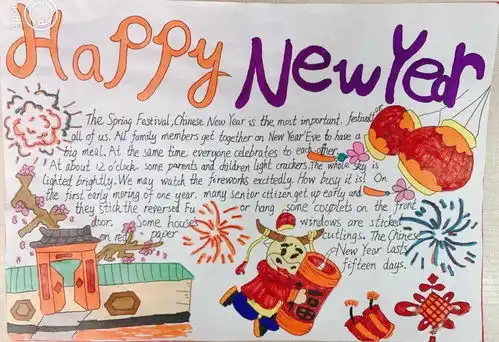 Happy New Year
The Spring Festival, Chinese New Year is the most important festival for
all of us. All family members get together on New Year Eve to have a
big meal. At the same time, everyone celebrates to each other.
At about 12 o'clock some parents and children light crackers. The whole sky is
lighted brightly. We may watch the fireworks excitedly. How busy it is! On
the first early moring of one year, many senior citizen get up early and
they stick the reversed Fu or hang some couplets on the front
door. Some houses windows are sticked
on red paper cutlings. The Chinese
New Year lasts
fifteen days.